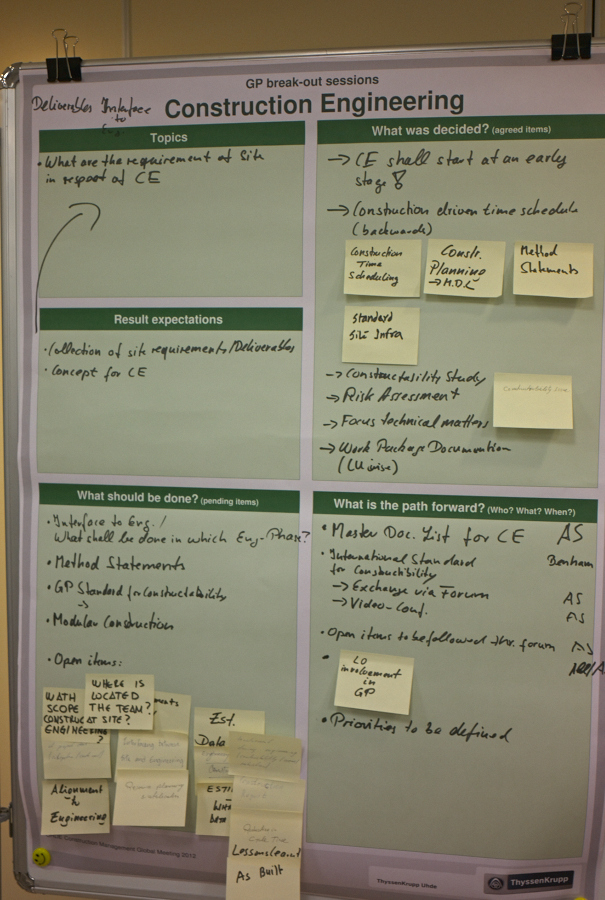 GP break-out sessions
Construction Engineering
Deliverables Interface
to
Topics
• What are the requirement of Site
in respect of CE
Result expectations
• Collection of site requirements/Deliverables
• Concept for CE
What was decided? (agreed items)
→ CE shall start at an early
stage
→ Construction driven time schedule
(backwards)
Construction
Time
Scheduling
Constr.
Planning
→ M.D.L
Method
Statements
Standard
Site Infra
→ Constructability Study
→ Risk Assessment
→ Focus technical matters
→ Work Package Documention
What should be done? (pending items)
• Interface to Eng. /
What shall be done in which Eng-Phase?
• Method Statements
• GP Standard for Constructability
→
• Modular Construction
• Open items:
WHERE IS
LOCATED
THE TEAM?
AT SITE?
WATH
SCOPE
CONSTRUC
ENGINEERING
?
Est.
Data
Alignment
to
Engineering
ESTI
Lessons learnt
As Built
What is the path forward? (Who? What? When?)
• Master Doc. List for CE AS
• International Standard Benham
for Constructibility
→ Exchange via Forum AS
→ Video-Conf. AS
• Open items to be followed thr. forum AS
• LO
involvement
in
GP
• Priorities to be defined
Construction Management Global Meeting 2012
ThyssenKrupp Uhde
ThyssenKrupp